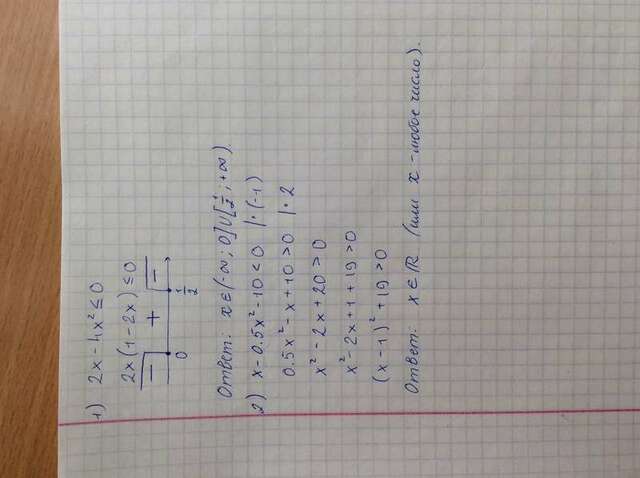 1) 2x - 4x² ≤ 0
2x(1 - 2x) ≤ 0
− + −
0 1/2
Ответ: x ∈ (-∞; 0] ∪ [1/2; +∞).
2) x - 0.5x² - 10 < 0 |· (-1)
0.5x² - x + 10 > 0 |· 2
x² - 2x + 20 > 0
x² - 2x + 1 + 19 > 0
(x - 1)² + 19 > 0
Ответ: x ∈ ℝ (или x - любое число).